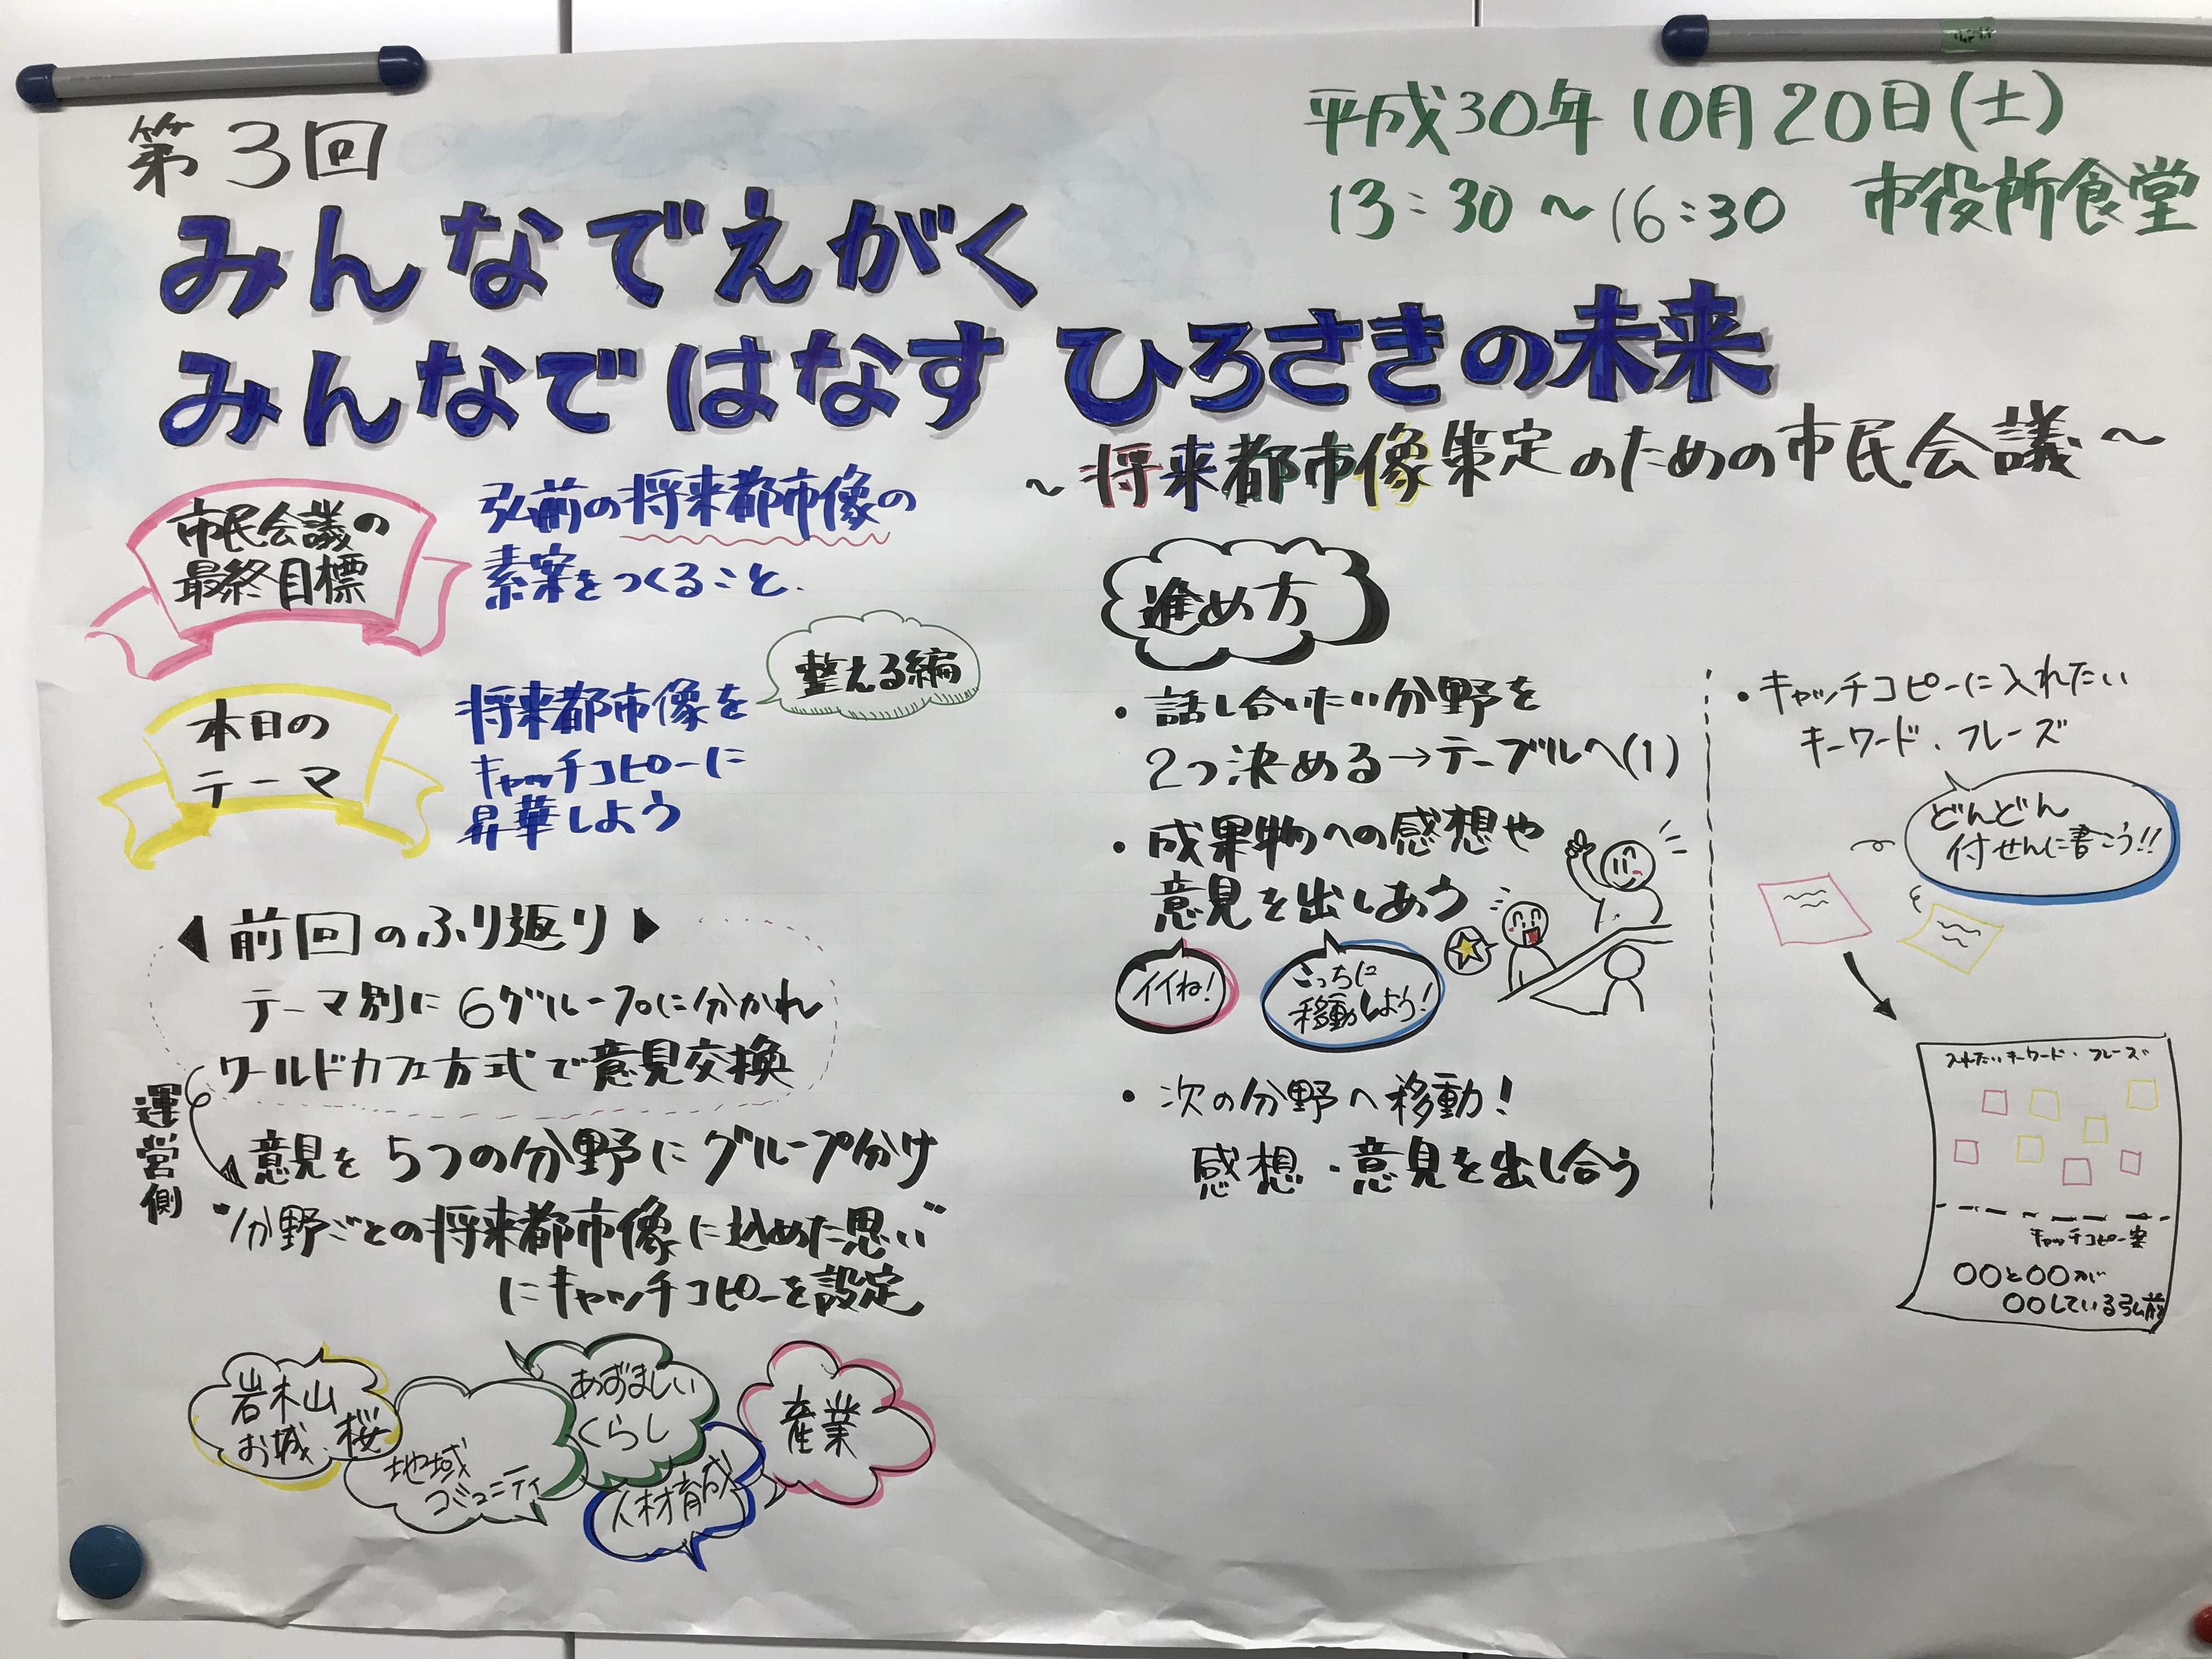 第3回
みんなでえがく
みんなではなす ひろさきの未来
～将来都市像策定のための市民会議～
平成30年10月20日(土)
13:30～16:30 市役所食堂
市民会議の
最終目標
弘前の将来都市像の
素案をつくること.
整える編
本日の
テーマ
将来都市像を
キャッチコピーに
昇華しよう
前回のふり返り
テーマ別に6グループに分かれ
ワールドカフェ方式で意見交換
運営側
意見を5つの分野にグループ分け
"分野ごとの将来都市像に込めた思い"
にキャッチコピーを設定
岩木山
お城.桜
地域
コミュニティ
あずましい
くらし
人材育成
産業
進め方
・話し合いたい分野を
2つ決める→テーブルへ(1)
・成果物への感想や
意見を出しあう
イイね!
こっちに
移動しよう!
・次の分野へ移動!
感想・意見を出し合う
・キャッチコピーに入れたい
キーワード、フレーズ
どんどん
付せんに書こう!!
入れたいキーワード・フレーズ
キャッチコピー案
○○と○○が
○○している弘前